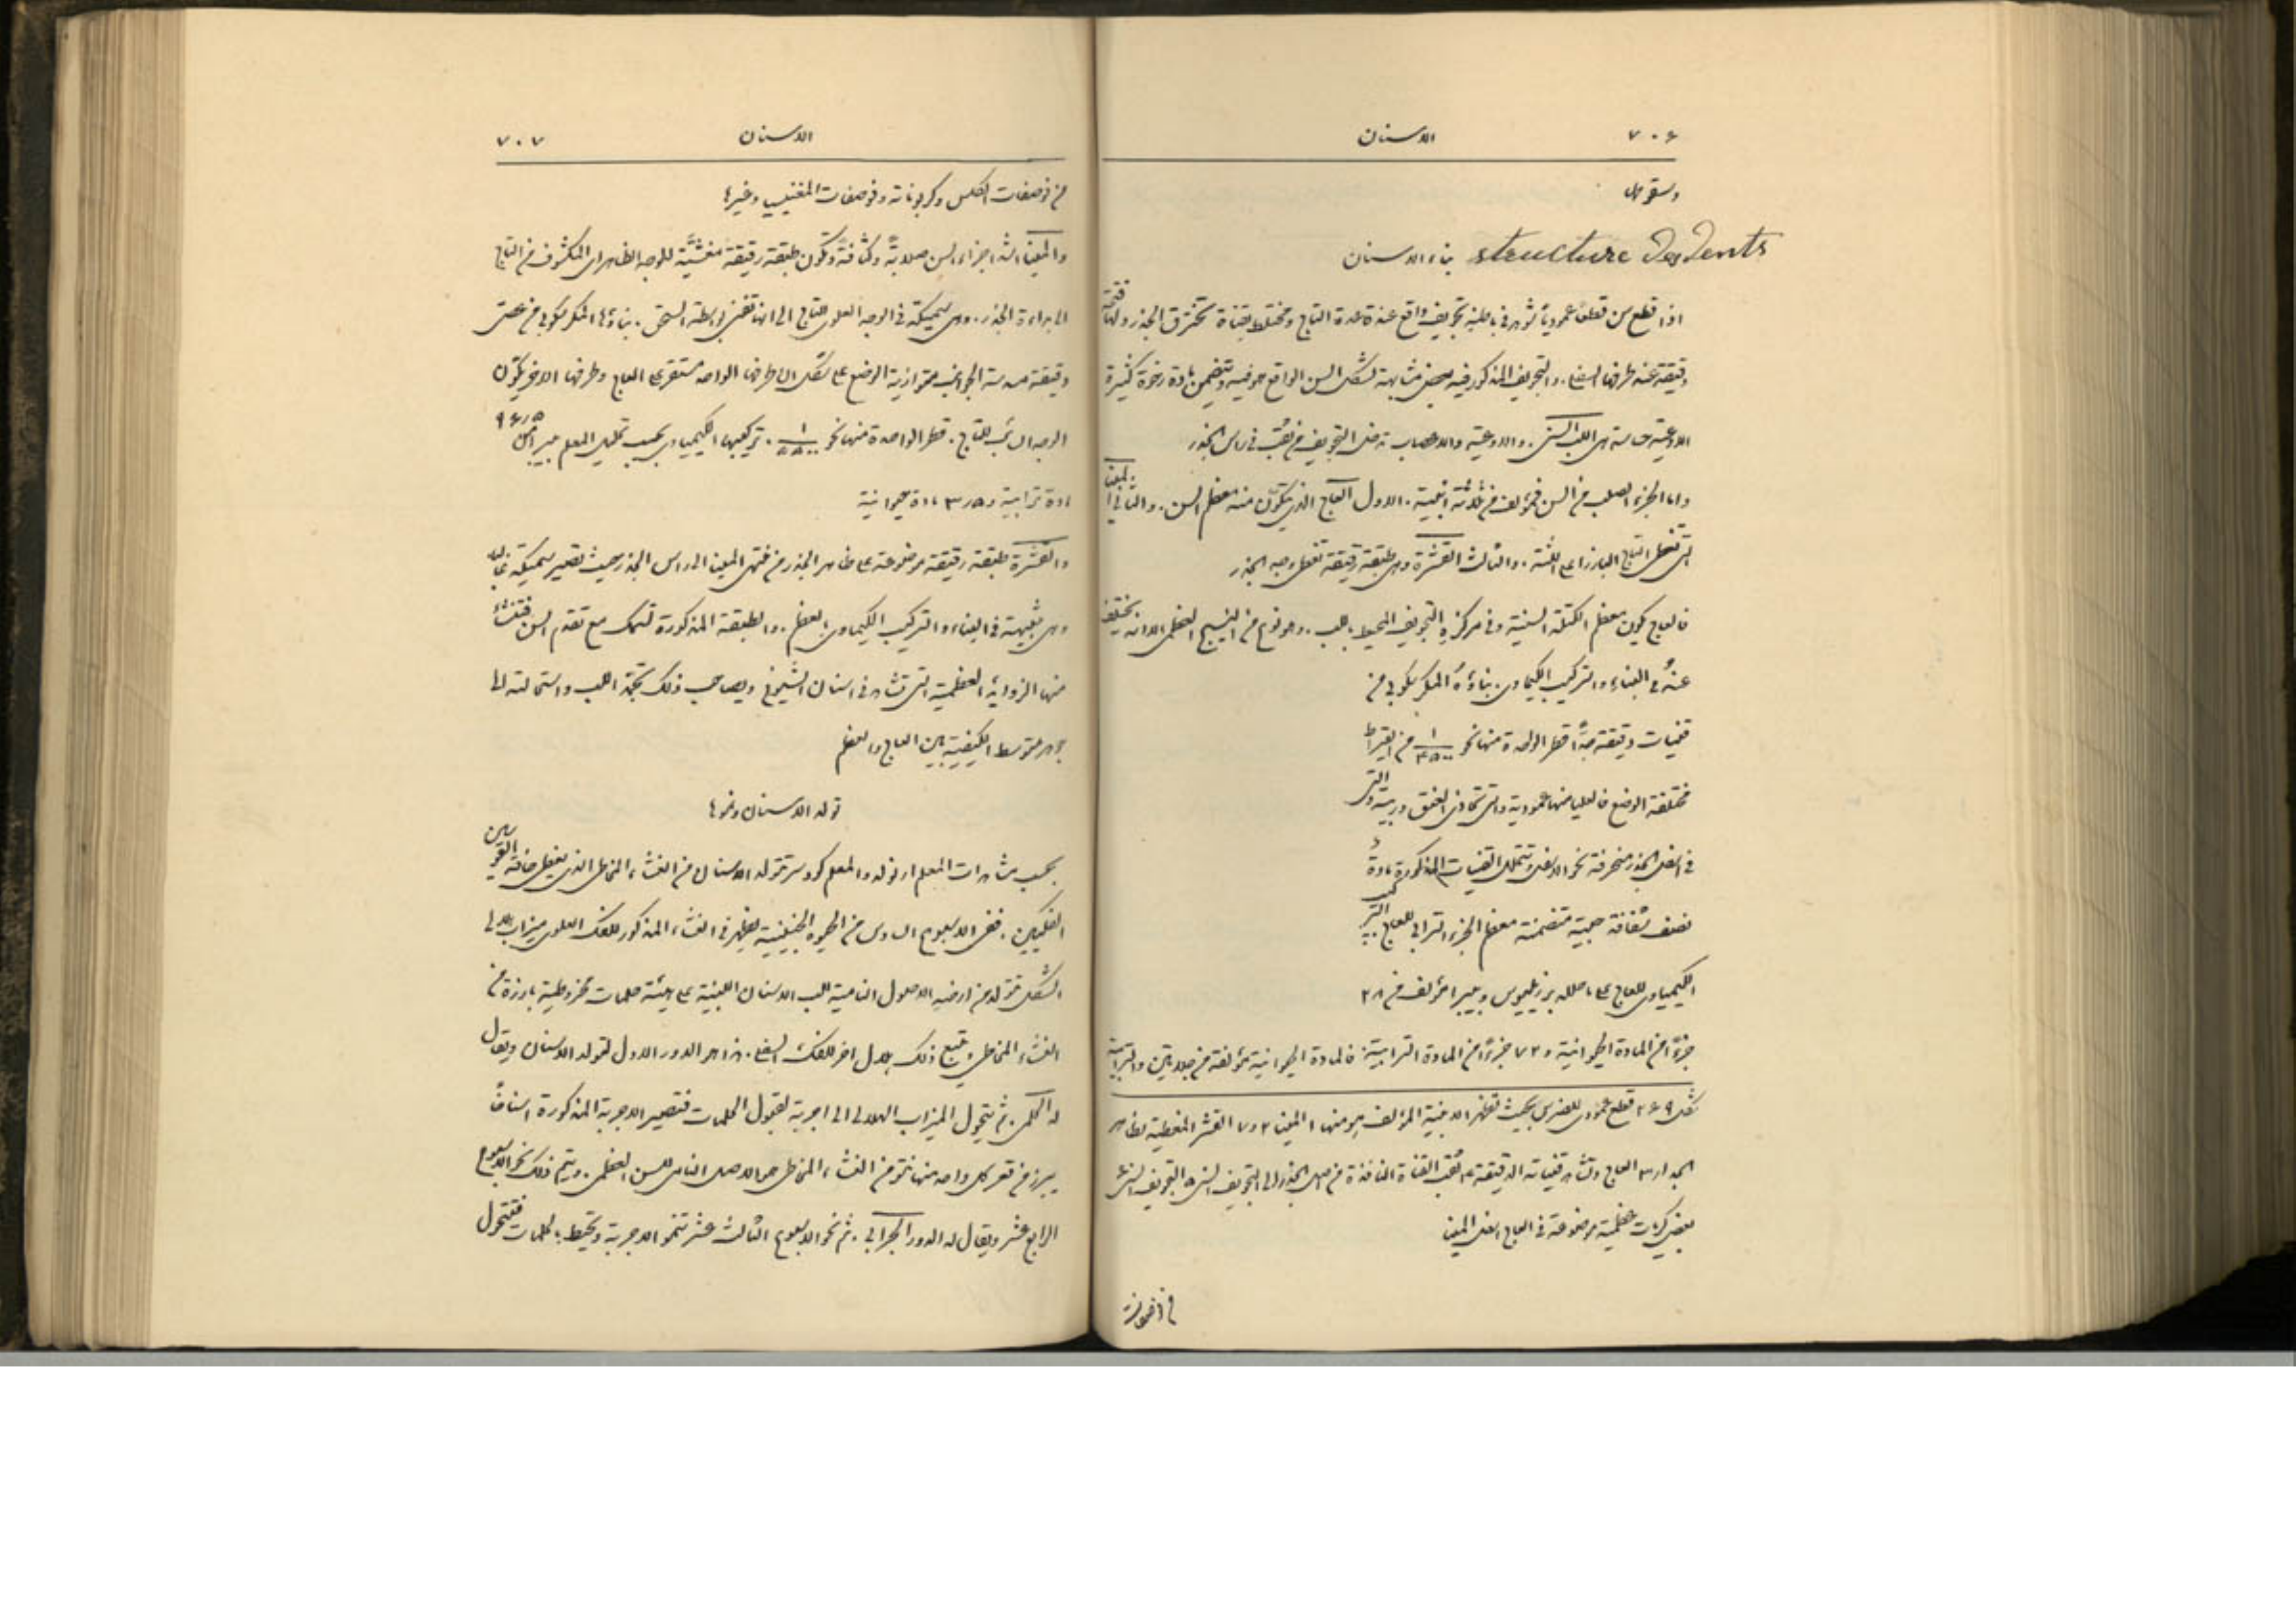 ٧٠٦
الاسنان
وسقوطها
بناء الاسنان structure Des Dents
اذا قطع سن قطعًا عموديًا شوهد في باطنه تجويف واقع عند قاعدة التاج ومختلط بقناة تخترق الجذر ولها فتحة
دقيقة عند طرفها السفلي. والتجويف المذكور فيه بعض مشابهة لشكل السن الواقع هو فيه ويتضمن مادة رخوة كثيرة
الاوعية حاسة هي اللب السني. والاوعية والاعصاب تدخل التجويف من ثقب في راس الجذر
واما الجزء الصلب من السن فمؤلف من ثلاثة ابنية. الاول العاج الذي يتكون منه معظم السن. والثاني المينا
التي تغطي التاج البارز اعلى اللثة. والثالث القشرة وهي طبقة رقيقة تغطي وجه الجذر
فالعاج يكون معظم الكتلة السنية وفي مركزه التجويف المحيط باللب. وهو نوع من النسيج العظمي الا انه يختلف
عنه في البناء والتركيب الكيماوي. بناؤه المكرسكوبي من
قنيات دقيقة جدًا قطر الواحدة منها نحو ١/٤٥٠٠ من القيراط
مختلفة الوضع فالعليا منها عمودية والتي تحاذي العنق وربية والتي
في اسفل الجذر منحرفة نحو الاسفل وتتخلل القنيات المذكورة مادة
نصف شفافة متضمنة معظم الجزء الترابي للعاج. التركيب
الكيمياوي للعاج على ما حلله برزيليوس وبيبرا مؤلف من ٢٨
جزءًا من المادة الحيوانية و ٧٢ جزءًا من المادة الترابية. فالمادة الحيوانية مؤلفة من جلاتين والترابية
شكل ٢٦٩ قطع عمودي للضرس بحيث تظهر الابنية المؤلف هو منها ١ المينا ٢ و ٧ القشر المغطية لظاهر
الجدار ٣ العاج وتشاهد قنياته الدقيقة ٤ ثقب القناة النافذة من اصل الجذر الى التجويف السني ٥ التجويف السني ٦
بعض كريات عظمية موضوعة في العاج اسفل المينا
من فوصفات
٧٠٧
الاسنان
من فوصفات الكلس وكربوناته وفوصفات المغنيسيا وغيرها
والمينا اشد اجزاء السن صلابةً وكثافةً وتكون طبقة رقيقة مغشّية للوجه الظاهر اي المكشوف من التاج
الى بداءة الجذر. وهي سميكة في الوجه العلوي للتاج الى ان تفنى بواسطة السحق. بناؤها المكرسكوبي من عصي
دقيقة مسدسة الجوانب متوازية الوضع على شكل ان طرفها الواحد مستقر على العاج وطرفها الاخر يكون
الوجه السائب للتاج. قطر الواحدة منها نحو ١/٥٥٠٠. تركيبها الكيمياوي بحسب تحليل المعلم بيبرا من ٩٦٫٥
مادة ترابية و ٣٫٥ مادة حيوانية
والقشرة طبقة رقيقة موضوعة على ظاهر الجذر من منتهى المينا الى راس الجذر حيث تصير سميكة غالبًا
وهي شبيهة في البناء والتركيب الكيماوي بالعظم. والطبقة المذكورة تسمك مع تقدم السن فتنشاء
منها الزوايد العظمية التي تشاهد في اسنان الشيوخ ويصاحب ذلك تحجّر اللب واستحالته الى
جوهر متوسط الكيفية بين العاج والعظم
تولد الاسنان ونموها
بحسب مشاهدات المعلم ارنولد والمعلم كودسر تتولد الاسنان من الغشاء المخاطي الذي يغطي حافة القوسين
الفكيين. ففي الاسبوع السادس من الحيوة الجنينية يظهر في الغشاء المذكور للفك العلوي ميزاب هلالي
الشكل تتولد من ارضيه الاصول النامية للب الاسنان اللبنية على هيئة حلمات مخروطية بارزة من
الغشاء المخاطي ويتبع ذلك هلال اخر للفك السفلي. هذا هو الدور الاول لتولد الاسنان ويقال
له الحلمي. ثم يتحول الميزاب الهلالي الى اجربة لقبول الحلمات فتصير الاجربة المذكورة اسنانًا
يبرز من قعر كل واحد منها نتوء من الغشاء المخاطي هو الاصل النامي للسن العظمي. ويتم ذلك نحو الاسبوع
الرابع عشر ويقال له الدور الجرابي. ثم نحو الاسبوع الثالث عشر تنمو الاجربة وتحيط بالحلمات فتتحول